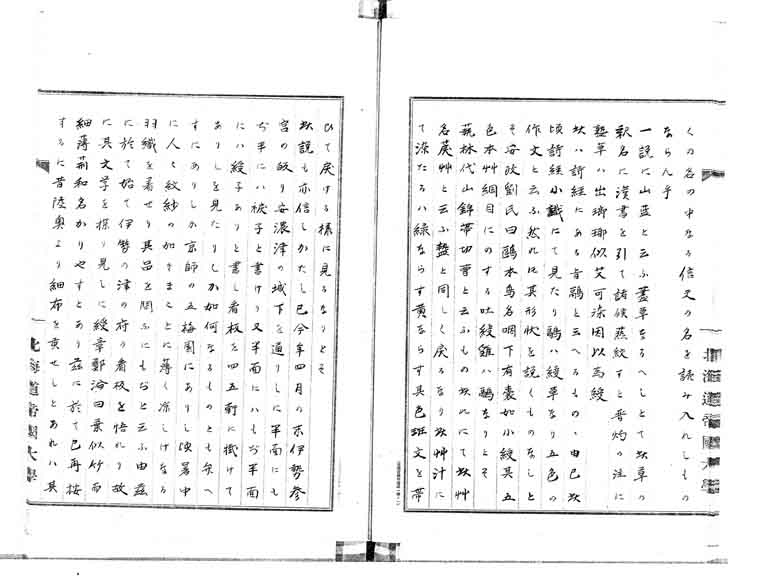 くの名の中なる信叉の名を読み入れしもの
ならん乎
一説に山藍と云ふ藎草なるへしとて玆草の
釈名に漢書を引て諸侯燕紋すと晋灼の注に
盭草ハ出琦瑯似艾可染因以為綬
玆ハ詩経にある旨鷊と云へるもの、由已玆
頃詩経小識にて見たり鷊ハ綬草なり五色の
作文と云ふ然れ𪜈其形状を説くものなしと
そ安政劉氏曰鷊本鳥名咽下有嚢如小綬具五
色本艸綱目にのする吐綬雞ハ鷊なりとそ
蔬林代山錦帯切曹と云ふもの玆れにて玆艸
名莀艸と云ふ盭と同しく戻るなり玆艸汁に
て染たるハ緑ならす黄ならす其色班文を帯
北海道帝國大學
ひて戻ける様に見るなりとそ
玆説も亦信しかたし已今年四月の末伊勢参
宮の皈り安濃津の城下を通りしに半面にも
ぢ半にハ袱子と書けり又半面にハもぢ半面
にハ綬子ありと書し看板を四五軒に掛けて
ありしを見たりしか如何なるものとも弁へ
すにありしか京師の五梅園にありし頃暑中
に人々紋紗の如きまことに薄く凉しけなる
羽織を着せり其品を問ふにもぢと云ふ由玆
に於て始て伊勢の津の府の看板を悟れり故
に其文字を探り見しに綬章鄭氵曰葉似竹而
細薄荊和名かりやすとあり玆に於て已再按
するに昔陸奥より細布を貢せしとあれハ其
北海道帝國大學